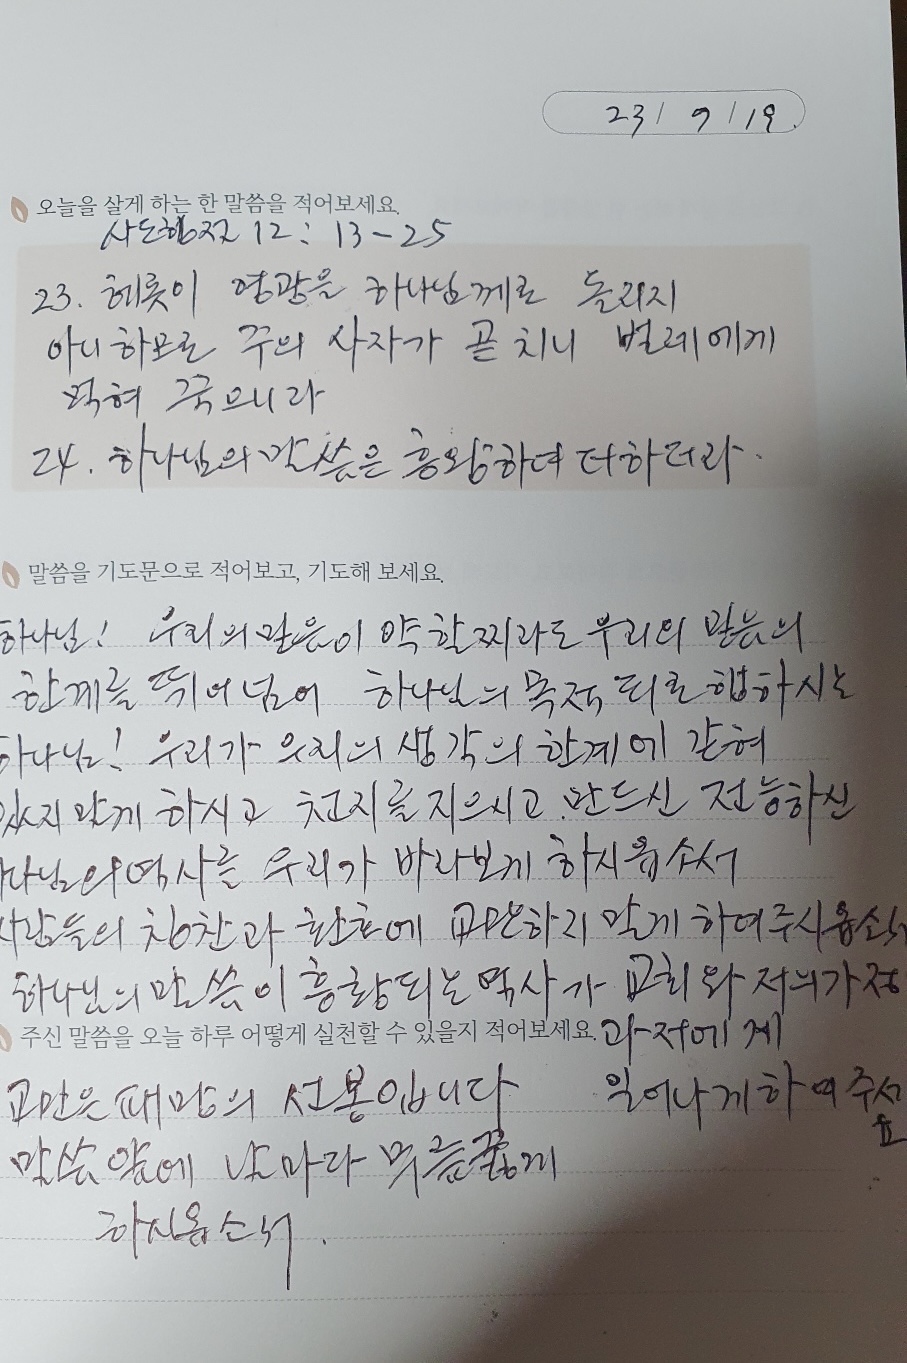 23/ 9/19.
오늘을 살게 하는 한 말씀을 적어보세요.
사도행전 12: 13-25
23. 헤롯이 영광을 하나님께로 돌리지
아니하므로 주의 사자가 곧 치니 벌레에게
먹혀 죽으니라
24. 하나님의 말씀은 흥왕하여 더하더라.
말씀을 기도문으로 적어보고, 기도해 보세요.
하나님! 우리의 믿음이 약할찌라도 우리의 믿음의
한계를 뛰어넘어 하나님의 목적 하시는
하나님! 우리가 우리의 생각의 한계에 갇혀
있지 않게 하시고 천지를 지으시고 만드신 전능하신
하나님의 역사를 우리가 바라보게 하시옵소서
사람들의 칭찬과 환호에 교만하지 말게 하여주시옵소서
하나님의 말씀이 흥왕되는 역사가 교회와 저희가정
과 저에게
일어나게하여주서
요
주신 말씀을 오늘 하루 어떻게 실천할 수 있을지 적어보세요.
교만은 패망의 선봉입니다
말씀앞에 날마다 무릎꿇게
하시옵소서.